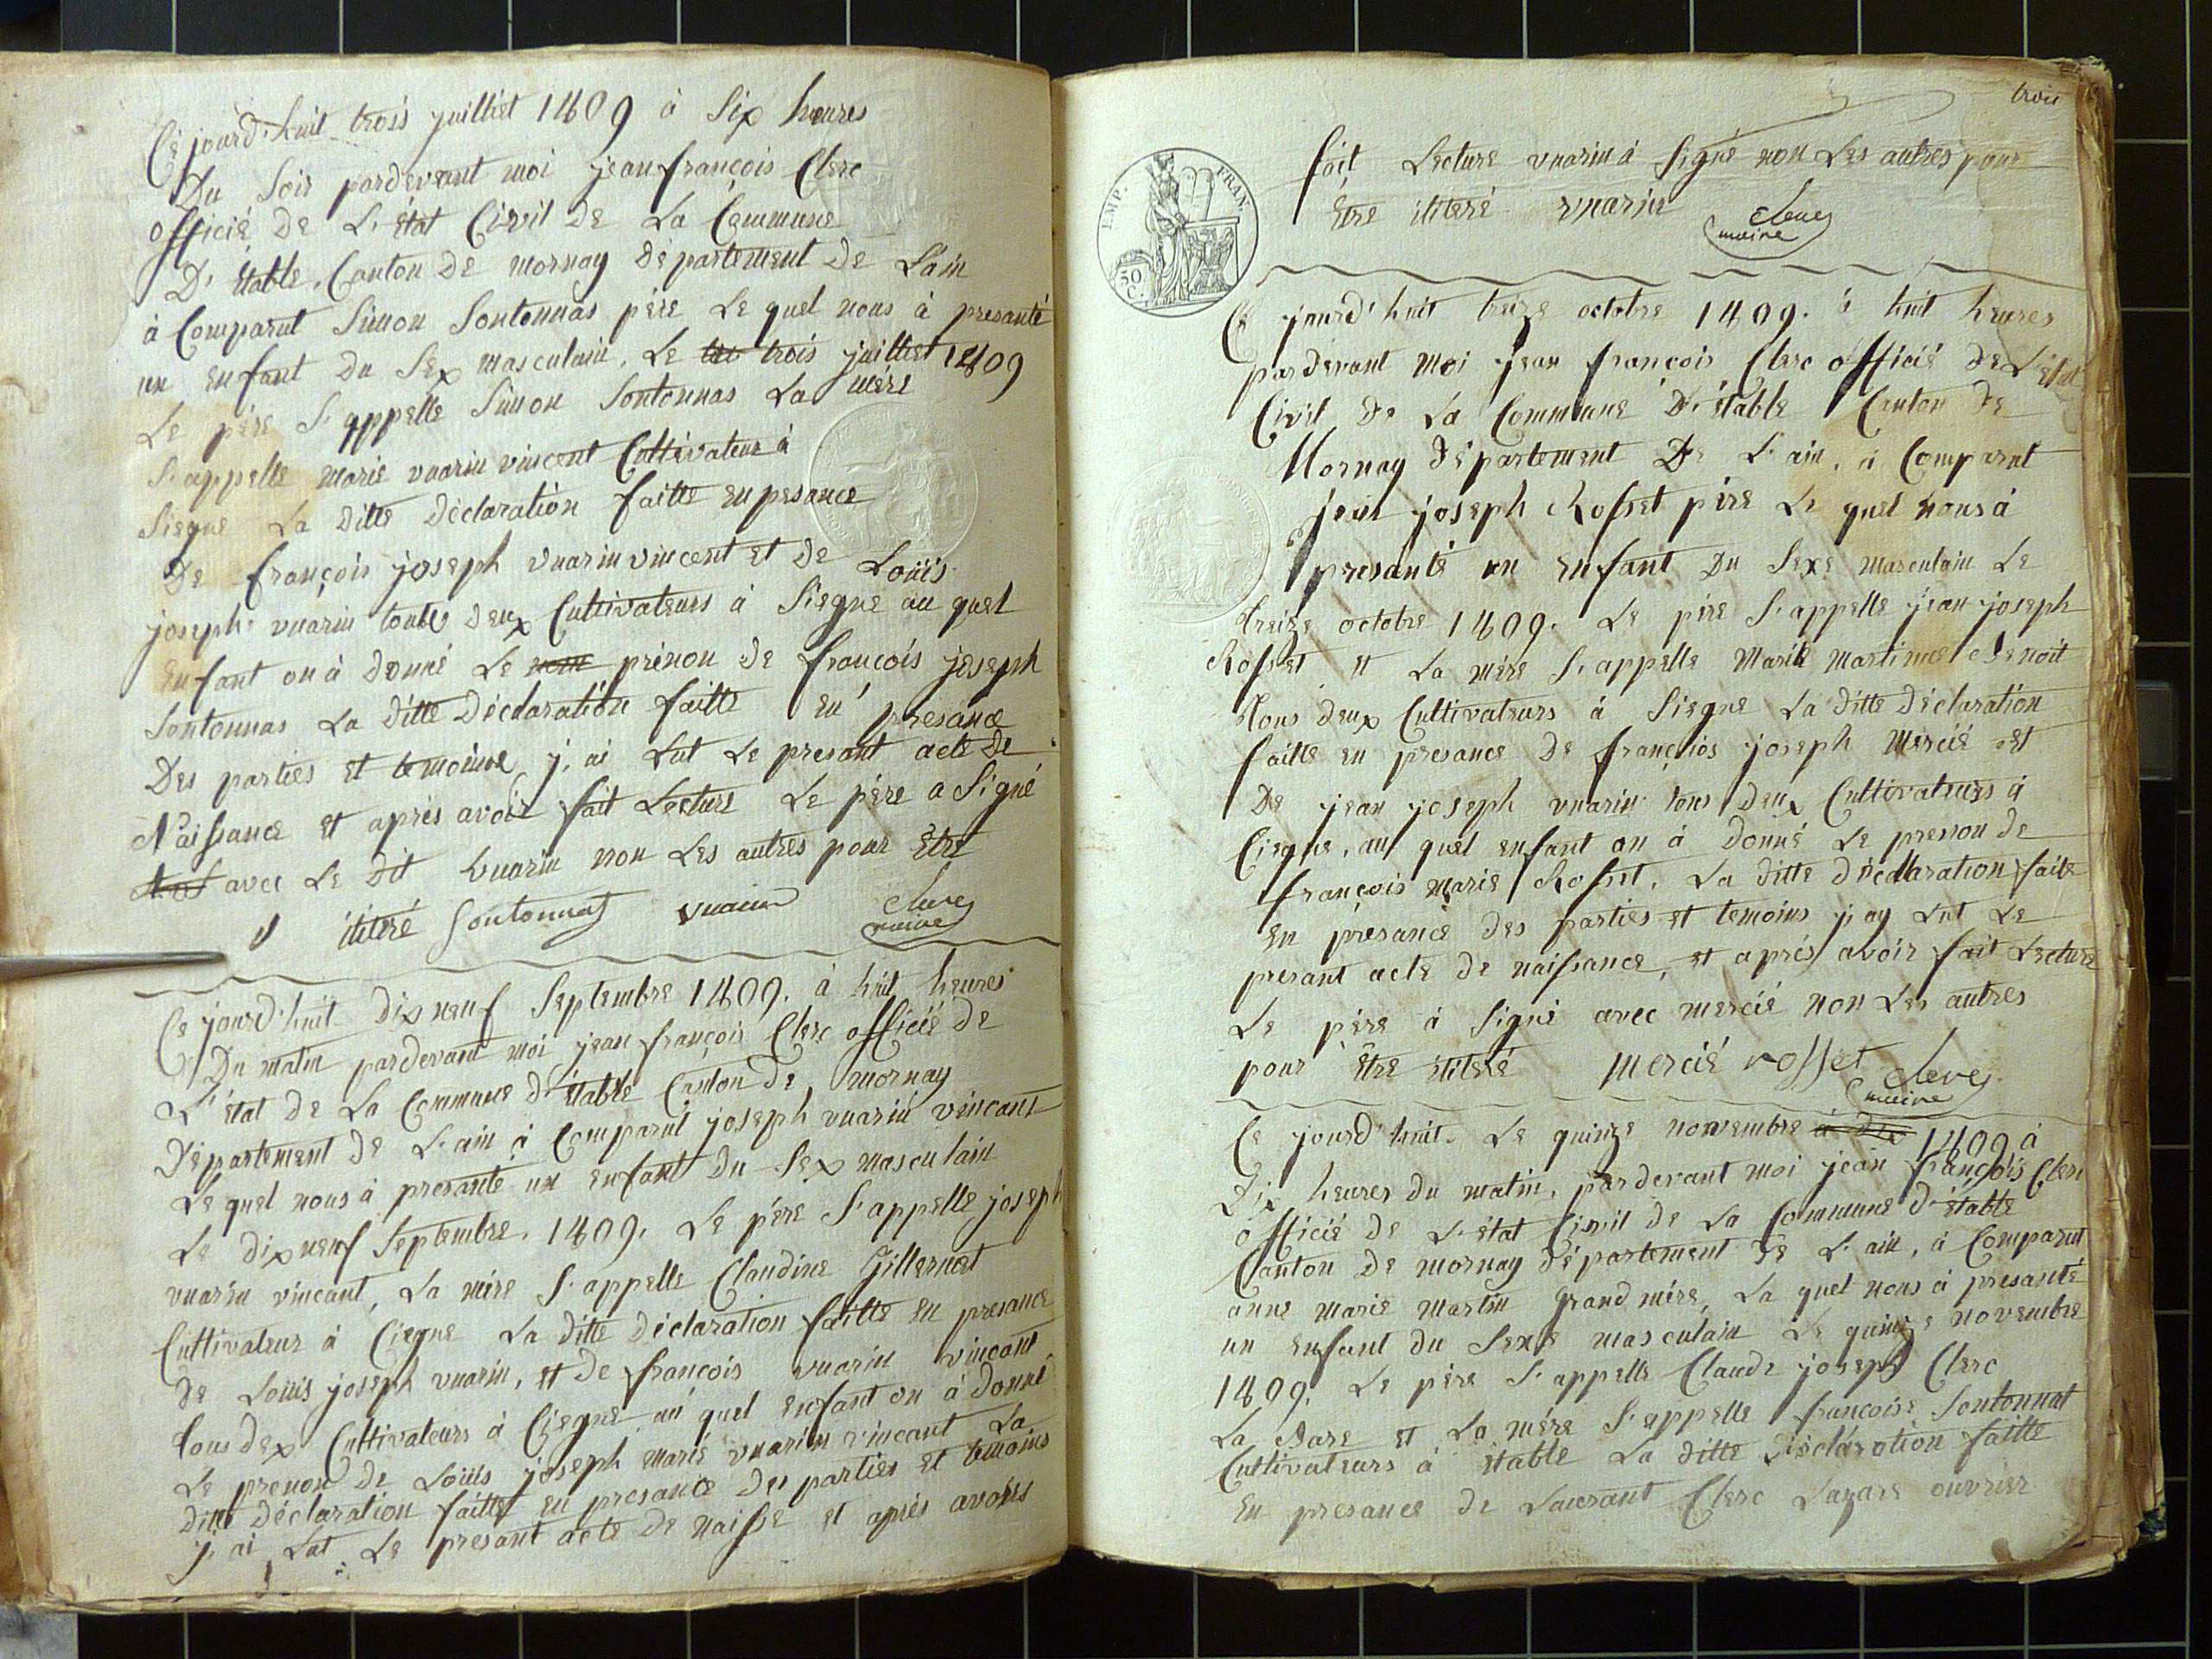 Ce jourd'huit trois juilliet 1809 à Six heures
Du Soir pardevant moi jean françois Clerc
officié de L'état Civil de La Commune
D'étable, Canton de mornay département de Lain
à Comparut Simon Sontonnas père Le quel nous à presanté
un enfant du Sex masculain, Le trois juilliet 1809
Le père S'appelle Simon Sontonnas La mère
S'appelle Marie vuarin vincent Cultivateur à
Siegne La ditte déclaration faitte en pesance
De françois joseph vuarin vincent et de Loüis
joseph vuarin toute deux Cultivateurs à Siegne au quel
enfant on à donné Le nom prénon de françois joseph
Sontonnas La ditte Déclaration faitte en presance
Des parties et temoins j'ai Lut Le presant acte de
Naissance et après avoir fait Lecture Le père a Signé
avec Le dit vuarin non Les autres pour Etre
ititeré Sontonnas vuarin Clerc
maire
Ce jourd'huit dix neuf Septembre 1809. à huit heures
Du matin pardevant moi jean françois Clerc officié de
L'état de La Commune d'étable Canton de mornay
Département de L'ain à Comparut joseph vuarin vincant
Le quel nous à presanté un enfant du Sex masculain
Le dix neuf Septembre. 1809. Le père S'appelle joseph
vuarin vincant, La mère S'appelle Claudine Gillernat
Cultivateur à Ciegne La ditte déclaration faitte en presance
de Loüis joseph vuarin, et de françois vuarin vincant
tous dex Cultivateurs à Ciegne au quel enfant on à donné
Le prenon de Loüis joseph marie vuarin vincant La
ditte déclaration faitte en presance des parties et temoins
j'ai Lut Le presant acte de naisse et après avoirs
trois
fait Lecture vuarin à Signé non Les autres pour
être ititeré vuarin Clerc
maire
EMP. FRAN.
50
C.
Ce jourd'huit treize octobre 1809. à huit heures
pardevant moi jean françois Clerc officié de L'état
Civil de La Commune D'étable Canton de
Mornay département De L'ain, à Comparut
jean joseph Rosset père Le quel nous à
presanté un enfant du Sexe masculain Le
treize octobre 1809. Le père S'appelle jean joseph
Rosset et La mère S'appelle Marie Martinne Benoit
tous deux Cultivateurs à Siegne La ditte déclaration
faitte en presance de françiois joseph Mercié et
De jean joseph vuarin tous deux Cultivateurs à
Ciegne, au quel enfant on à donné Le prenon de
françois marie Rosset, La ditte déclaration faite
en presance des parties et temoins j'ay Lut Le
presant acte de naissance, et après avoir fait Lecture
Le père à Signé avec mercié non Les autres
pour Etre ititeré Mercié rosset Clerc
maire
Ce jourd'huit Le quinze novembre à dix 1809 à
Dix heures du matin, pardevant moi jean françois Clerc
officié de L'état Civil de La Commune d'étable
Canton de mornay département de L'ain, à Comparut
anne marie martin grand mère, La quel nous à presanté
un enfant du Sexe masculain Le quinze novembre
1809. Le père S'appelle Claude joseph Clerc
La et La mère S'appelle françoise Sontonnat
Cultivateurs à étable La ditte déclaration faitte
En presance de Laurant Clerc Lazare ouvrier